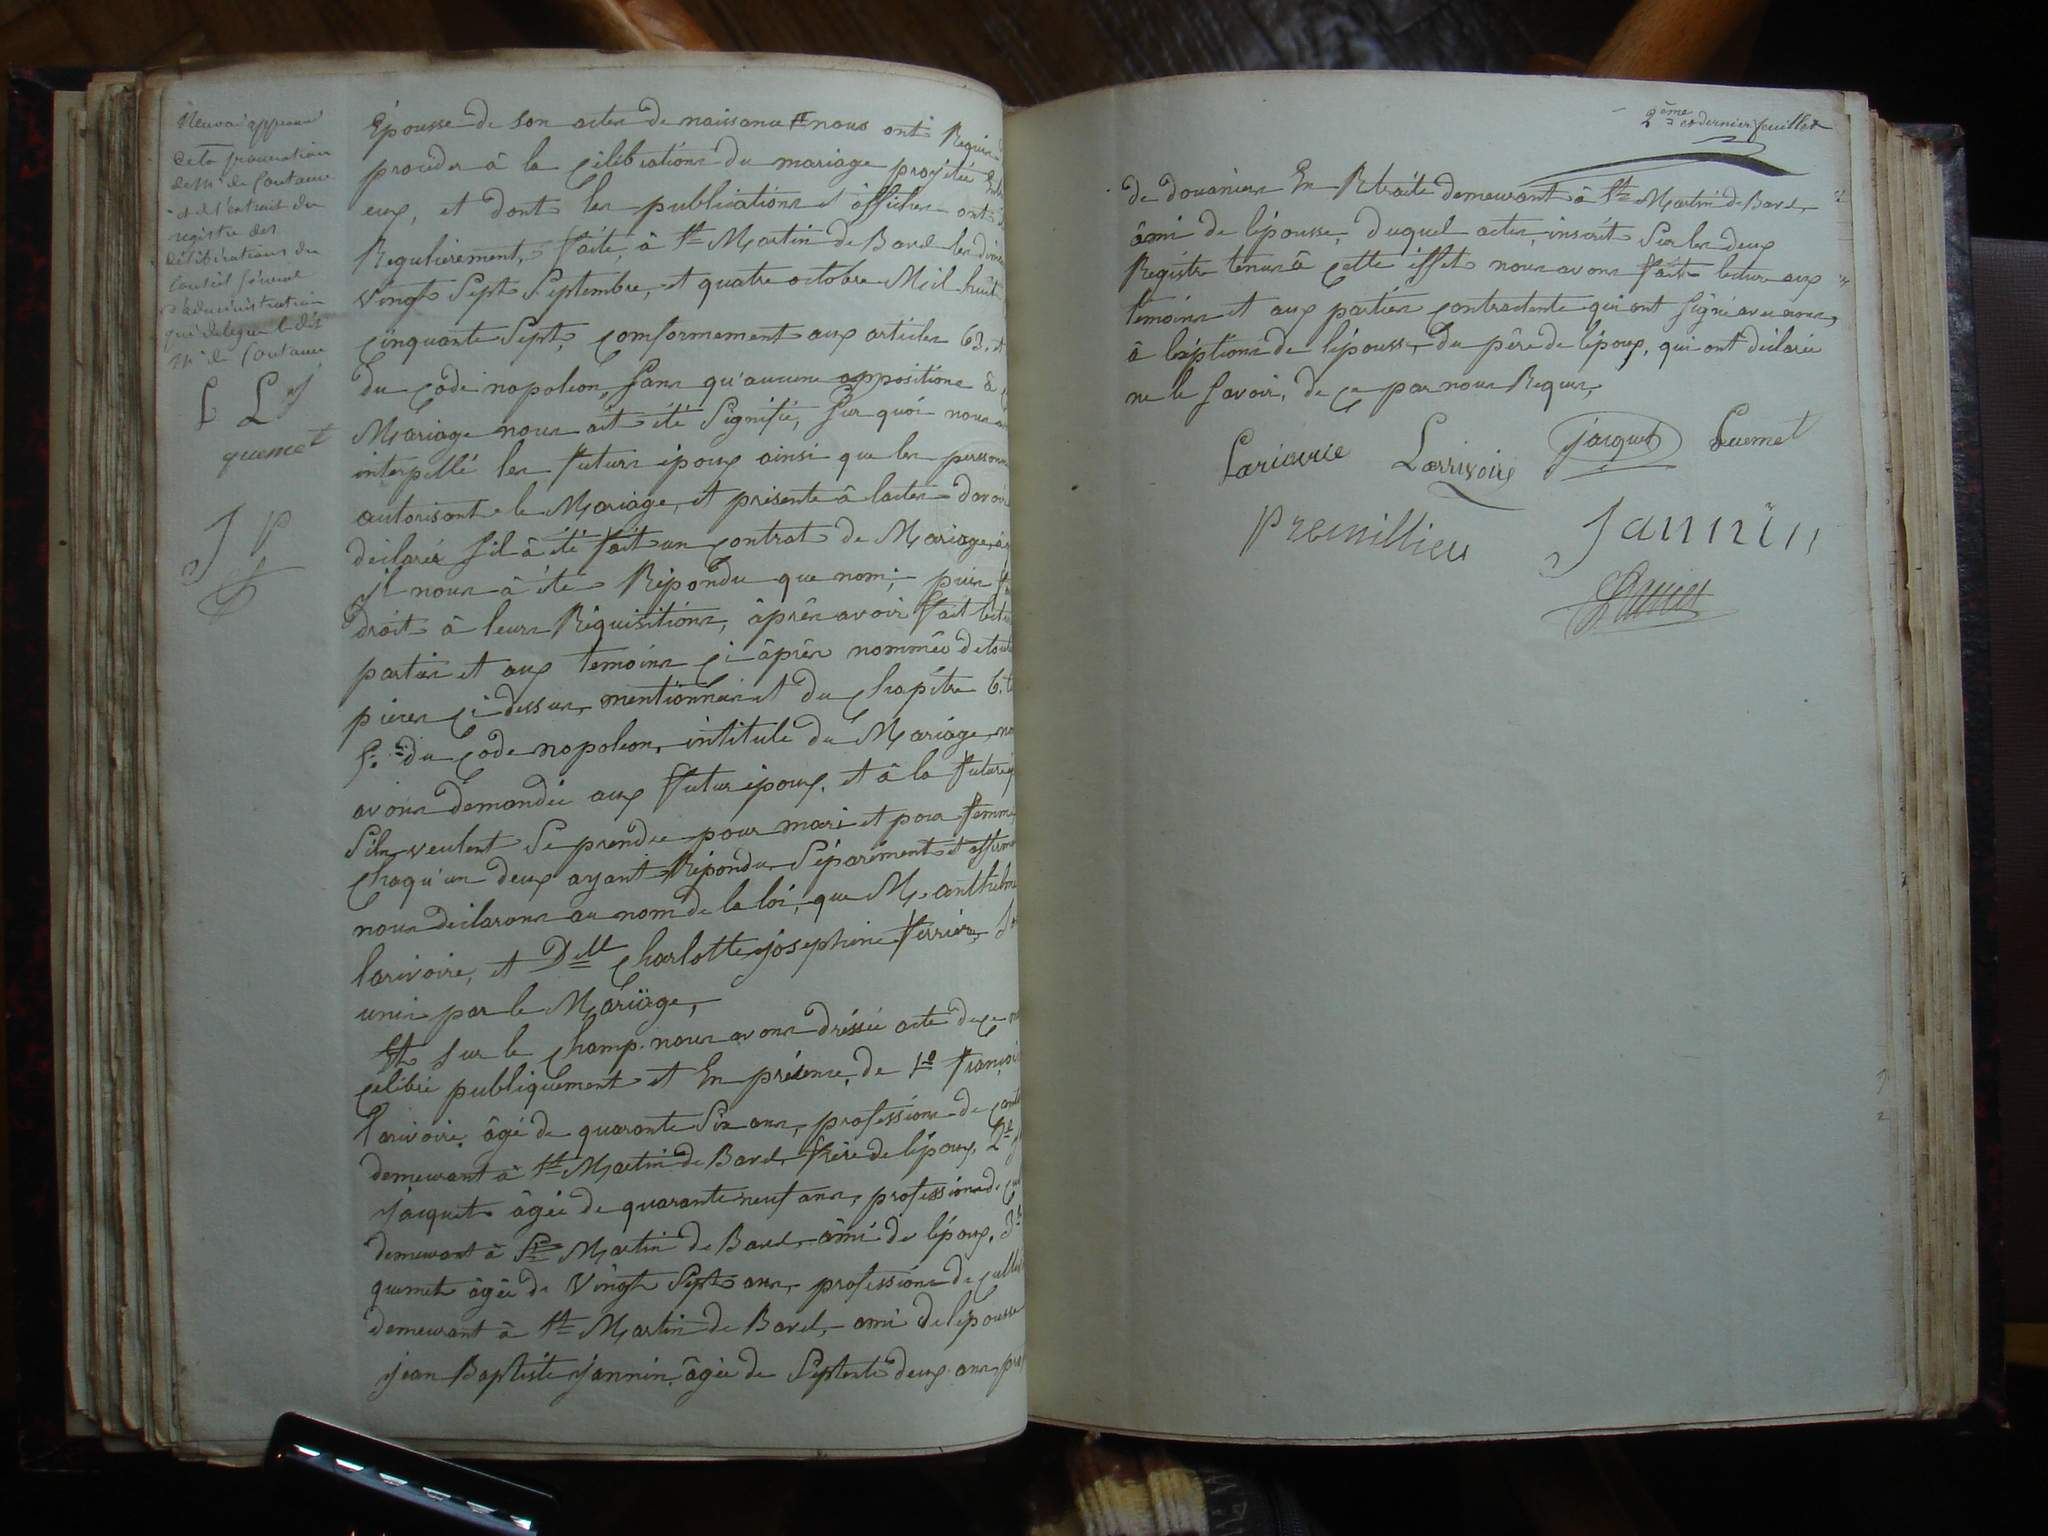 de la procuration
de Mr de Coutance
et de l'extrait du
registre des
délibérations du
Conseil Général
d'administration
qui délègue le dit
Mr de Coutance
L L J
quemet
J P
Epousse de son acter de naissance # nous ont Requis
procéder à la célébrations du mariage projetée
eux, et dont les publications d'affiches ont
Regulierement, faite, à St Martin de Bavel les
vingt Sept Septembre, et quatre octobre Mil huit
cinquante Sept, comformement aux articles 63. et
du code napoleon, Sans qu'aucune oppositions à
Mariage nous ait été Signifié, Sur quoi nous
interpellé les futurs époux ainsi que les personnes
autorisant le Mariage, et présente à lacter d'avoir
déclarée S'il à été fait un contrat de Mariage,
Il nous à été Répondu que nom; puis
droit à leurs Réquisitions, âprês avoir fait
parties et aux temoins ci âprês nommée de
pieces ci dessus, mentionnées et du chapitre 6.
5. du Code napoleon, intitule du Mariage,
avons demandée aux futur époux, et à la future
S'ils veulent Se prendre pour mari et pour femme
chaqu'un deux ayant Répondu, Séparément et
nous déclarons au nom de la loi, que M. anthelme
larivoire, et Delle Charlotte josephine ferrier,
unis par le Mariäge,
Et Sur le Champ nous avons dréssée acte de ce
célébré publiquement et En présence, de 1o françois
larivoire, âgé de quarante Six ans, professions de
demeurant à St Martin de Bavel, frère de lépoux, 2e
jacquet âgée de quarante neuf ans, professions de
demeurant à St Martin de Bavel, âmi de lépoux, 3e
quemet âgée de vingt Sept ans, professions de
demeurant à St Martin de Bavel, ami de lépousse
jean Baptiste jannin, âgée de Septente deux ans,
2ème et dernier feuillet
de douanier En Retraite demeurant à St Martin de Bavel,
âmi de lépousse, duquel acter, inscrit Sur les deux
Registre tenus à cette éffet nous avons fait lecture aux
temoins et aux parties contractente qui ont Signé avec nous,
â léxéptions de lépousse, Du père de lépoux, qui ont déclarée
ne le Savoir, de ce par nous Requis,
Larivoire Larrivoire jacquet Quemet
Premillieu Jannin